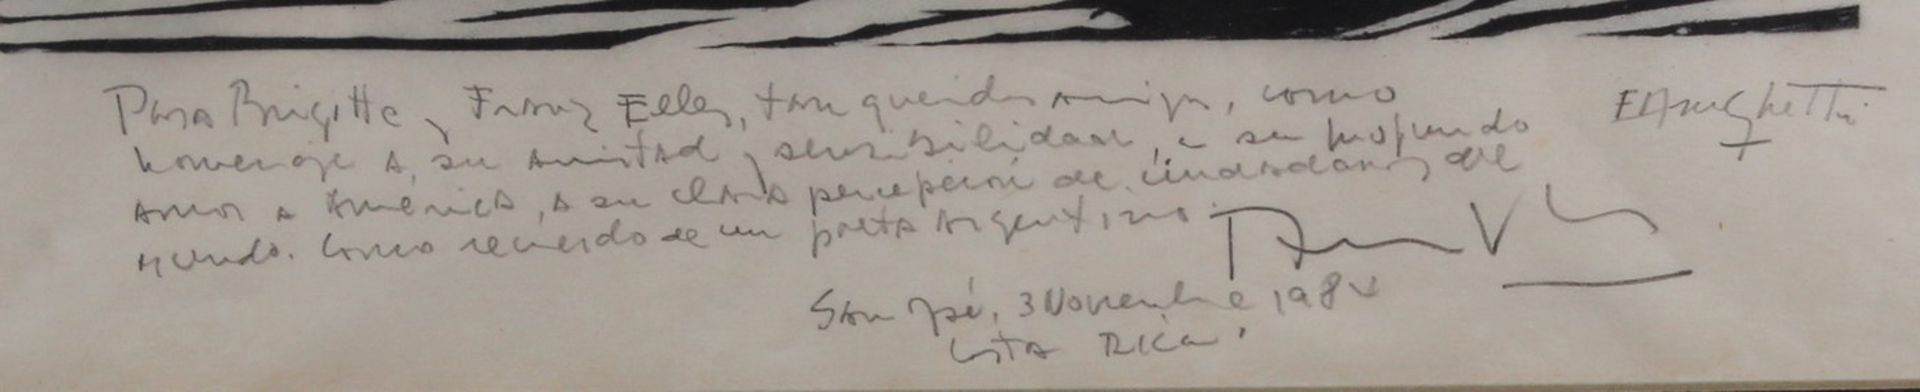 Para Brigitte y Franz Eller, tan queridos amigos, como
homenaje a su amistad y sensibilidad, a su profundo
amor a América, a su clara percepción de ciudadanos del
mundo. Como recuerdo de un poeta argentino.
San José, 3 Noviembre 198
Costa Rica.
FAmighetti